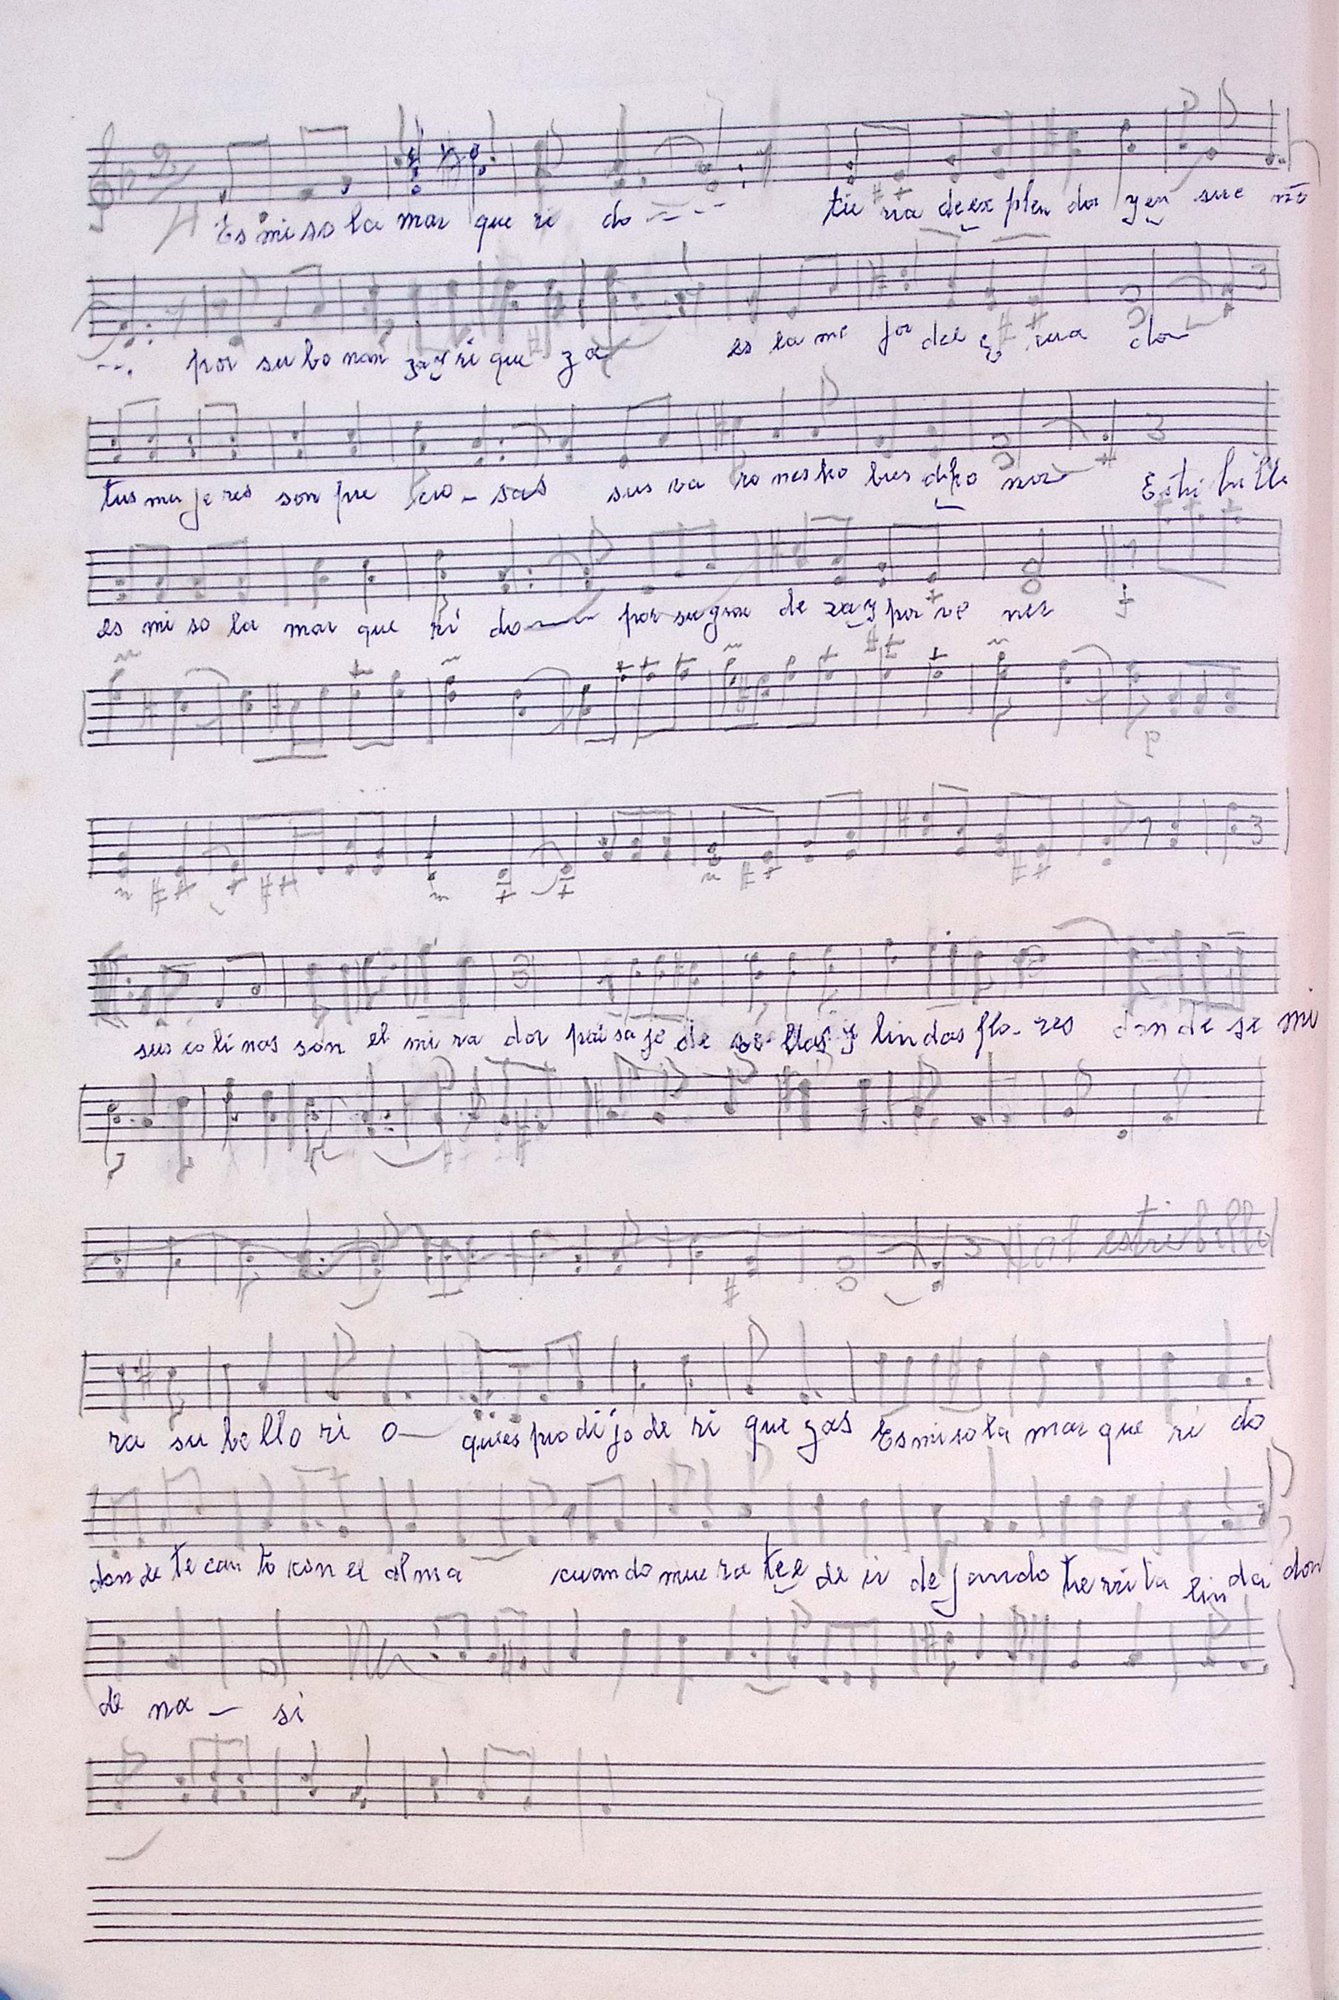 Es mi so la mar que ri do - - - tie rra de ex plen dor y en sue ño
- - . por su bo nan za y ri que za es la me jor del E cua dor
tus mu je res son pre cio - sas sus va ro nes no bles di ho nor Estribillo
es mi so la mar que ri do por su gran de za y por ve nir
sus co li nas son el mi ra dor pai sa je de be llas y lin das flo - res don de se mi
al estribillo
ra su be llo ri o que es pro di jo de ri que zas Es mi so la mar que ri do
don de te can to con el alma cuando mue ra te e de ir de jando tie rri ta lin da don
de na - si